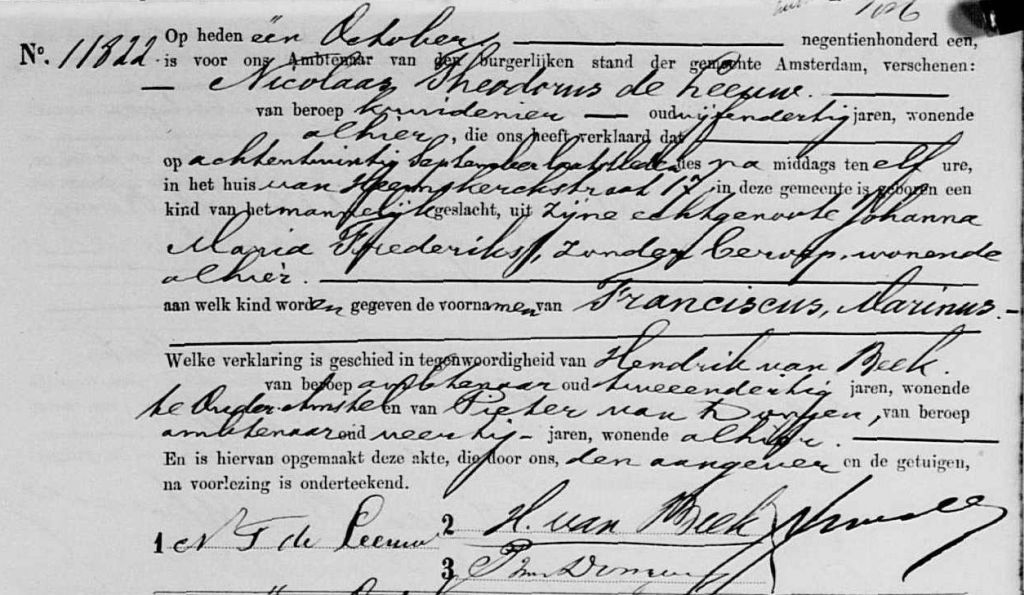 Nº. 11822. Op heden een October negentienhonderd een,
is voor ons Ambtenaar van den burgerlijken stand der gemeente Amsterdam, verschenen:
Nicolaas Theodorus de Leeuw.
van beroep kruidenier oud vijfendertig jaren, wonende
alhier, die ons heeft verklaard dat
op achtentwintig September laatstleden des na middags ten elf ure,
in het huis van Heemskerckstraat 17 in deze gemeente is geboren een
kind van het mannelijk geslacht, uit zijne echtgenoote Johanna
Maria Frederiks, zonder beroep, wonende
alhier.
aan welk kind worden gegeven de voornamen van Franciscus, Marinus.
Welke verklaring is geschied in tegenwoordigheid van Hendrik van Beek.
van beroep ambtenaar oud tweeendertig jaren, wonende
te Ouder-Amstel en van Pieter van Dongen, van beroep
ambtenaar oud veertig jaren, wonende alhier.
En is hiervan opgemaakt deze akte, die door ons, den aangever en de getuigen,
na voorlezing is onderteekend.
1 N T de Leeuw 2 H. van Beek
3 P van Dongen